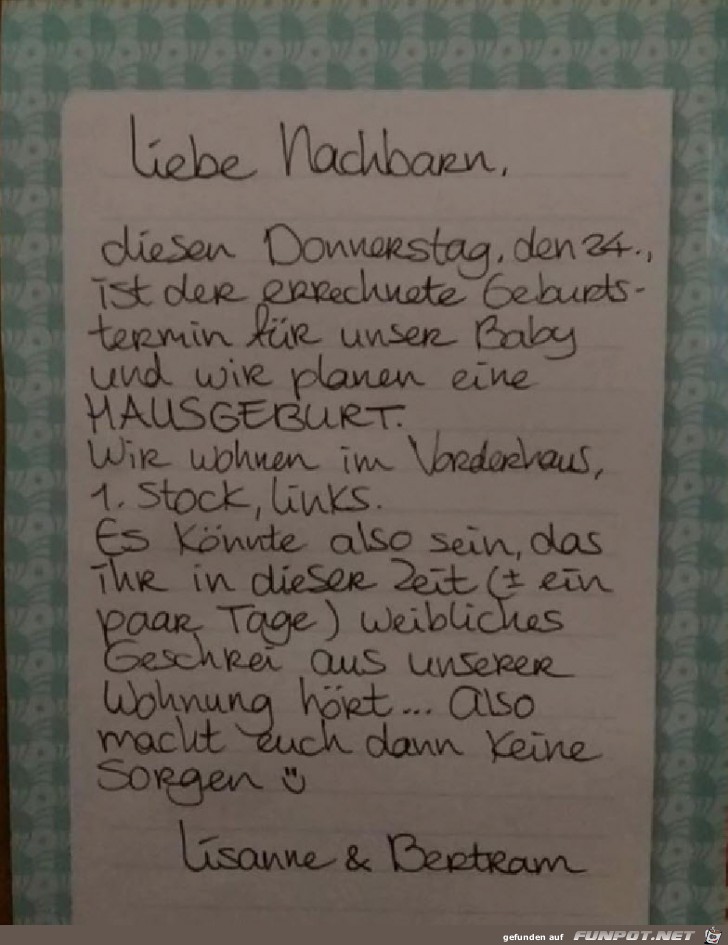 Liebe Nachbarn,
diesen Donnerstag, den 24.,
ist der errechnete Geburts-
termin für unser Baby
und wir planen eine
HAUSGEBURT.
Wir wohnen im Vorderhaus,
1. Stock, links.
Es könnte also sein, das
ihr in dieser Zeit (± ein
paar Tage) weibliches
Geschrei aus unserer
Wohnung hört... also
macht euch dann keine
Sorgen ü
Lisanne & Bertram
gefunden auf FUNPOT.NET